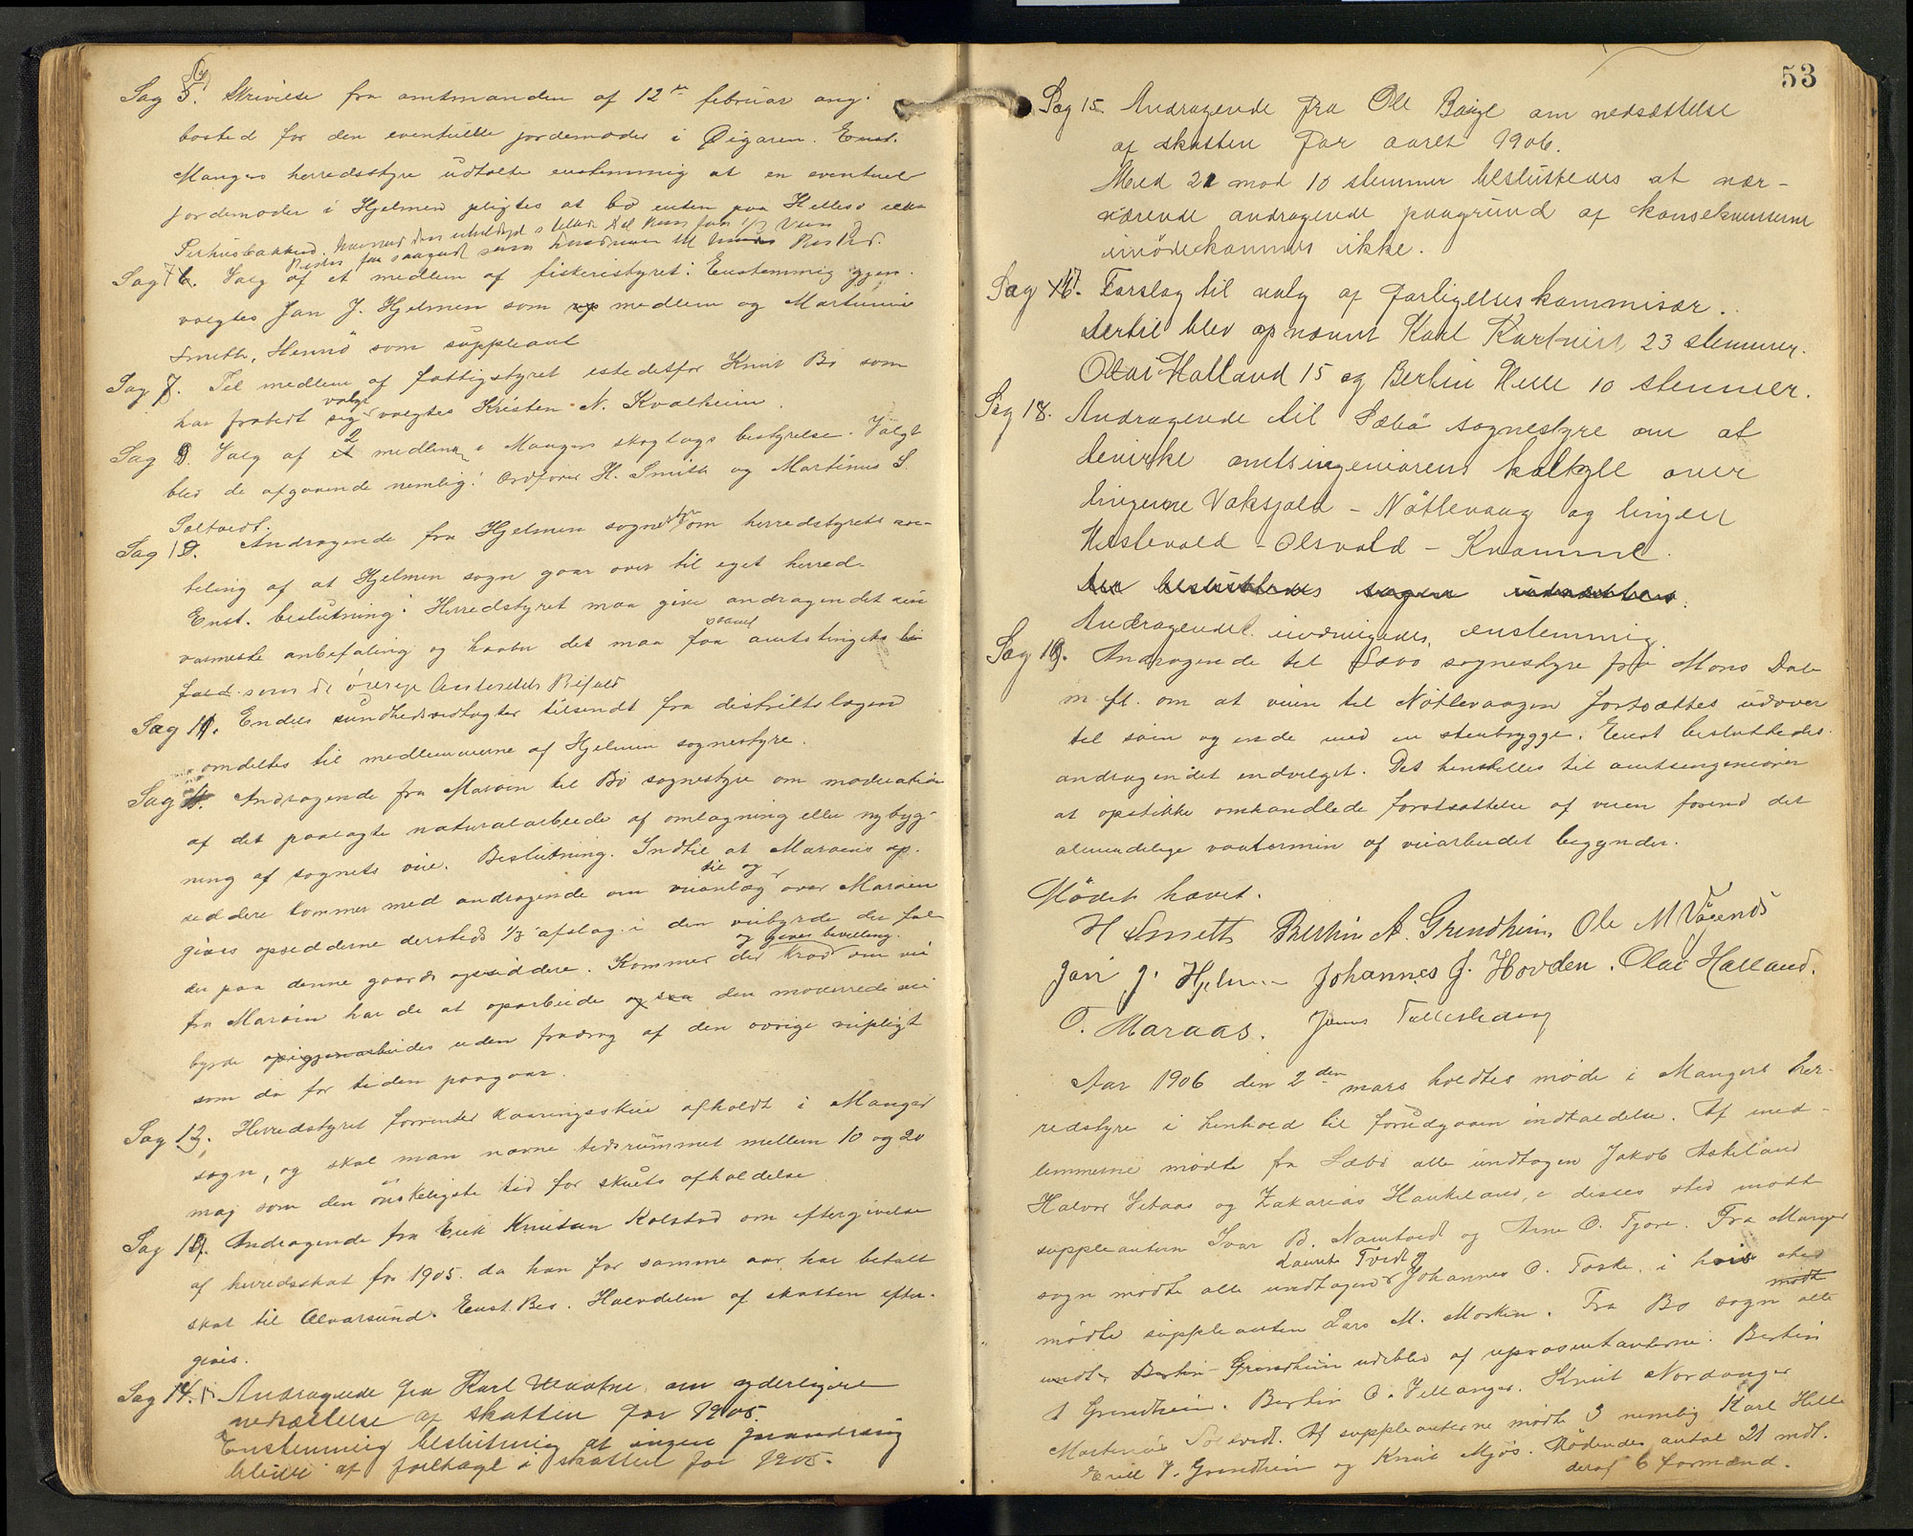 Sag 5. Skrivelse fra amtmanden af 12te februar ang.
bosted for den eventuelle jordemoder i Øigaren. Enst.
Mangers herredsstyre udtalte enstemmig at en eventuel
jordemoder i Hjelmen pligtes at bo enten paa Hellesø eller
Sag 6. Valg af et medlem af fiskeristyret: Enstemmig gjen-
valgtes Jan J. Hjelmen som medlem og Martinus
Smith, Hennø som suppleant
Sag 7. Til medlem af fattigstyret istedetfor Knut Bø som
har frabedt sig valg valgtes Kristen N. Kvalheim.
Sag 9. Valg af 2 medlem i Mangers skoglags bestyrelse. Valgt
blev de afgaaende nemlig: Ordfører H. Smith og Martinus S.
Soltvedt.
Sag 10. Andragende fra Hjelmen sognestyr om herredstyrets an-
beling af at Hjelmen sogn gaar over til eget herred.
Enst. beslutning: Herredstyret maa give andragendet sin
varmeste anbefaling og haaber det maa faa saavel amtstingets bi
fald som de øvrige Autoriteters Bifald
Sag 11. Endel sundhedsvedtægter tilsendt fra distriktslægen
omdeltes til medlemmerne af Hjelmen sognestyre.
Sag Andragende fra Marøen til Bø sognestyre om moderation
af det paalagte naturalarbeide af omlægning eller nybyg-
ning af sognets veie. Beslutning. Indtil at Marøens op-
siddere kommer med andragende om veianlæg til og over Marøen
gives opsidderne dersteds 1/3 afslag i den veibyrde der fal
der paa denne gaards opsiddere. Kommer der krav om vei og gives bevilling.
fra Marøen har de at oparbeide den modererede vei
byrde uden fradrag af den øvrige veipligt
som da for tiden paagaar.
Sag 12. Herredstyret forventer kaaringsskue afholdt i Manger
sogn, og skal man nævne tidsrummet mellem 10 og 20
maj som den ønskeligste tid for skuets afholdelse
Sag 13. Andragende fra Erik Knutsen Kolstad om eftergivelse
af herredsskat for 1905. da han for samme aar har betalt
skat til Alversund. Enst. Bes. Halvdelen af skatten efter-
gives.
Sag 14. Andragende fra Karl om yderligere
nedsættelse af skatten for 1905.
Enstemmig beslutning at ingen forandring
blive af foretaget i skatten for 1905.
53
Sag 15. Andragende fra Ole Bøige om nedsættelse
af skatten for aaret 1906.
Med 21 mod 10 stemmer besluttedes at nær-
værende andragende paagrund af konsekvenserne
imødekommes ikke.
Sag 17. Forslag til valg af forligelseskommisær.
Dertil blev opnævnt Karl Kartveit 23 stemmer.
Olai Halland 15 og Berlin Helle 10 stemmer.
Sag 18. Andragende til Sæbø sognestyre om at
bevirke amtsingeniørens kalkyle over
lingerne Vaksjold - Nøtlevaag og linjen
Hestevold - Olsvold - Kvamme.
Der besluttedes sagen udsættes.
Andragendet indvilgedes enstemmig
Sag 19. Andragende til Sæbø sognestyre fra Mons Dale
m. fl. om at veien til Nøtlevaagen fortsættes udover
til søen og ende med en stenbrygge. Enst besluttedes
andragendet indvilget. Det henstilles til amtsingeniøren
at opstikke omhandlede forstsættelse af veien førend det
almindelige vaartermin af veiarbeidet begynder.
Mødet hævet.
H Smith Berthin A. Grendheim, Ole M Vågenes
Jan J. Hjelmen Johannes J. Hovden. Olai Halland.
O. Maraas. Jens
Aar 1906 den 2den mars holdtes møde i Mangers her-
redstyre i henhold til forudgaaen indkaldelse. Af med-
lemmerne mødte fra Sæbø alle undtagen Jakob Askeland
Halvor Sætaas og Zakarias Haukeland, i disses sted mødte
suppleanterne Ivar B. Namtvedt og Arne O. Fjore. Fra Manger
sogn mødte alle undtagen Laurits Tvedt og Johannes O. Toska, i hvis sted
mødte suppleanten Lars M. Morken. Fra Bø sogn alle
undt. Bertin Grendheim udeblev af representanterne: Bertin
A Grendheim. Bertin O. Vellanger. Knut Nordanger
Martinius Soltvedt. Af suppleanterne mødte 3 nemlig Karl Helle
Erik J. Grendheim og Knut Mjøs. Mødendes antal 21 mdl.
deraf 6 formænd.